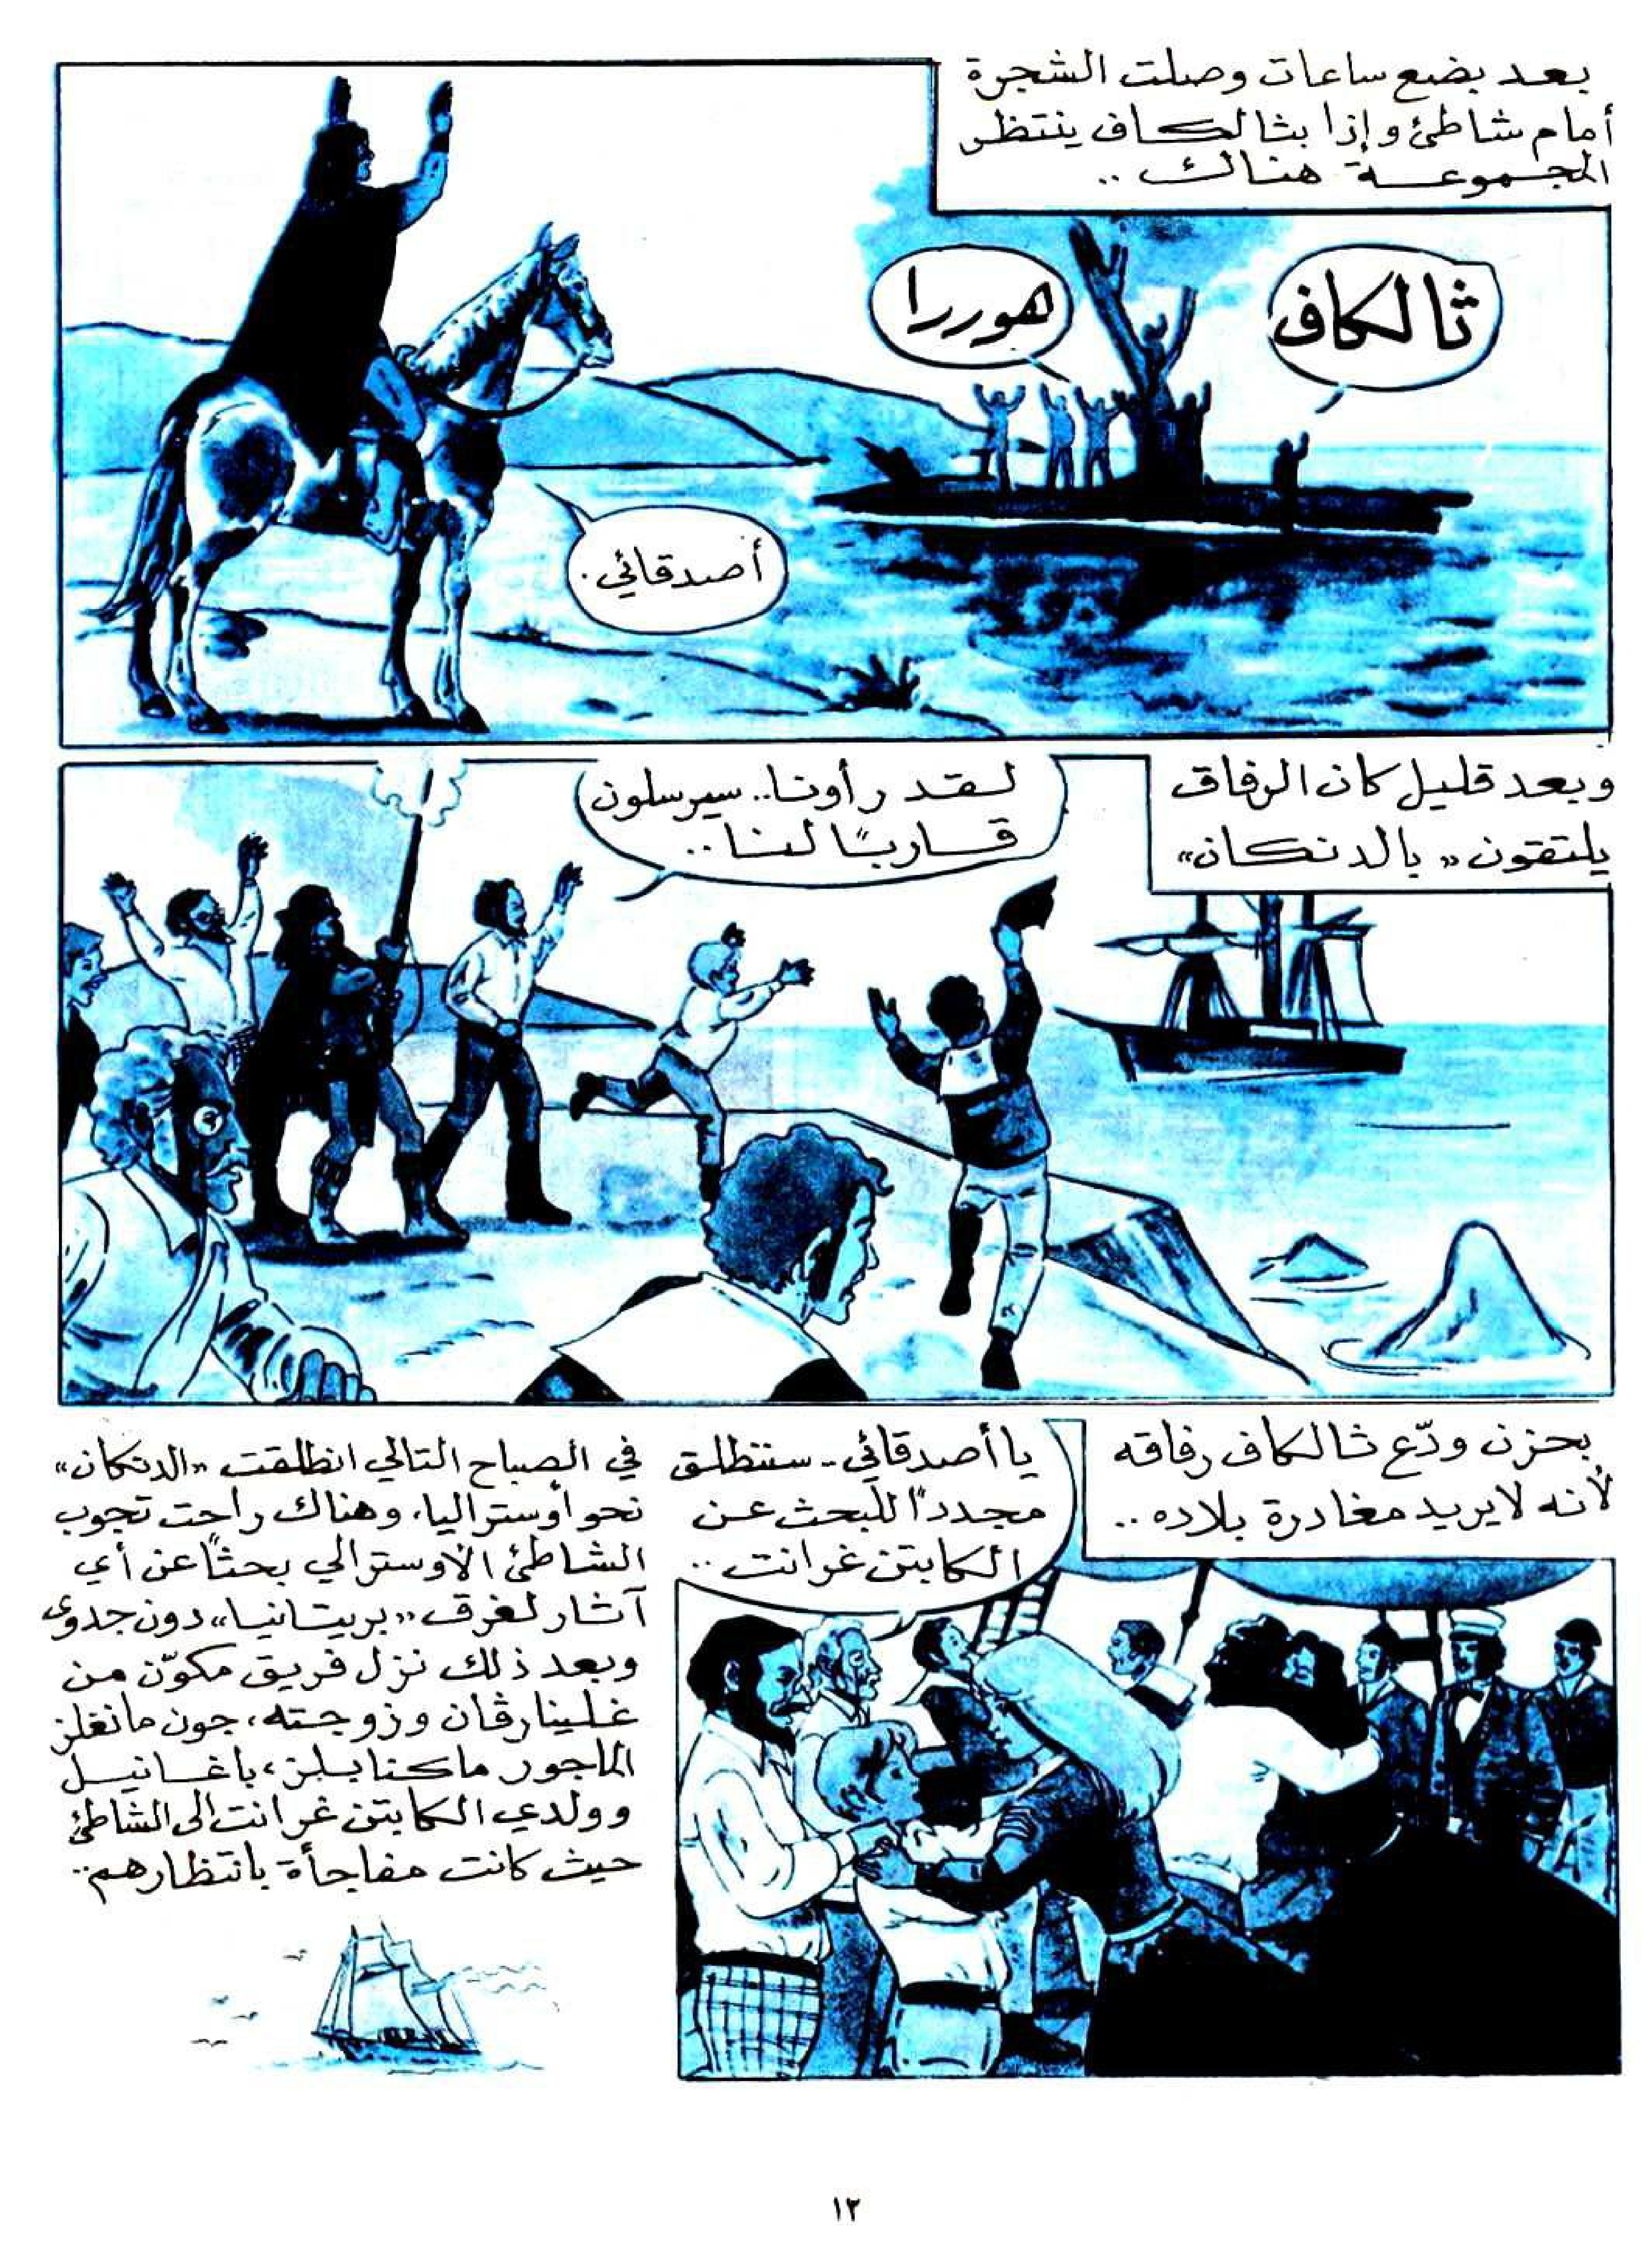 بعد بضع ساعات وصلت الشجرة
أمام شاطئ وإذا بثالكاف ينتظر
المجموعة هناك ..
ثالكاف
هوررا
أصدقائي .
وبعد قليل كان الرفاق
يلتقون «بالدنكان»
لقد رأونا .. سيرسلون
قاربًا لنا ..
بحزن ودّع ثالكاف رفاقه
لأنه لا يريد مغادرة بلاده ..
يا أصدقائي - سننطلق
مجددًا للبحث عن
الكابتن غرانت ..
في الصباح التالي انطلقت «الدنكان»
نحو أوستراليا، وهناك راحت تجوب
الشاطئ الأوسترالي بحثًا عن أي
آثار لغرق «بريتانيا»، دون جدوى
وبعد ذلك نزل فريق مكوّن من
غلينارڤان وزوجته، جون مانغلز
الماجور ماكنابلز، باغانيل
وولدي الكابتن غرانت إلى الشاطئ
حيث كانت مفاجأة بانتظارهم ..
١٢